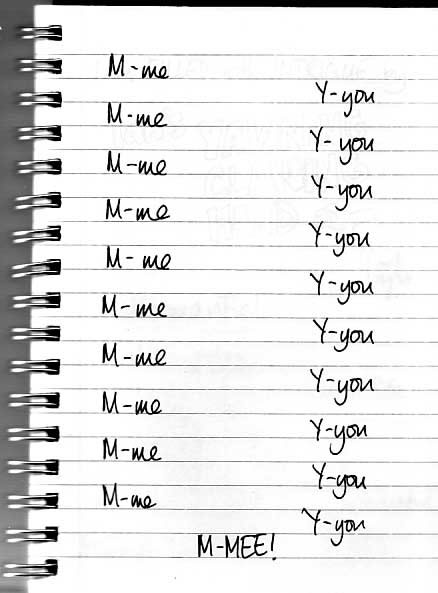 M-me
Y-you
M-me
Y-you
M-me
Y-you
M-me
Y-you
M-me
Y-you
M-me
Y-you
M-me
Y-you
M-me
Y-you
M-me
Y-you
M-me
Y-you
M-MEE!